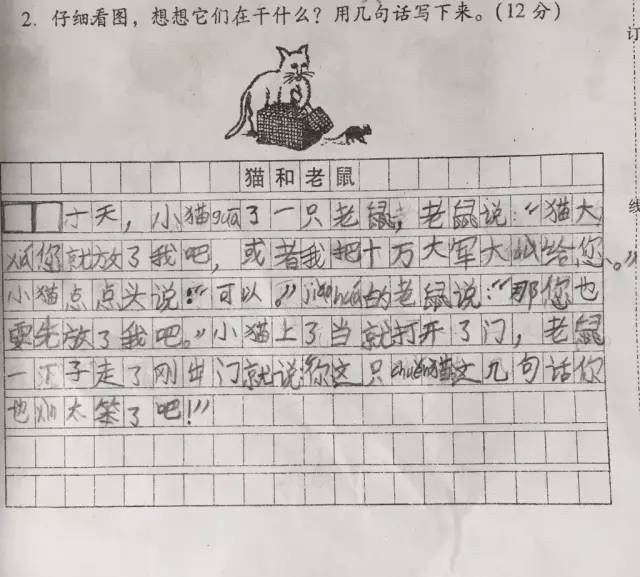 2. 仔细看图，想想它们在干什么？用几句话写下来。(12分)
订
猫和老鼠
十天，小猫guā了一只老鼠，老鼠说：“猫大
您就放了我吧，或者我把十万大军大给您。”
线
小猫点点头说：“可以。”jiǎohuá的老鼠说：“那您也
要先放了我吧。”小猫上了当就打开了门，老鼠
一下子走了刚出门就说你这只chǔn猫这几句话你
也太笨了吧！”